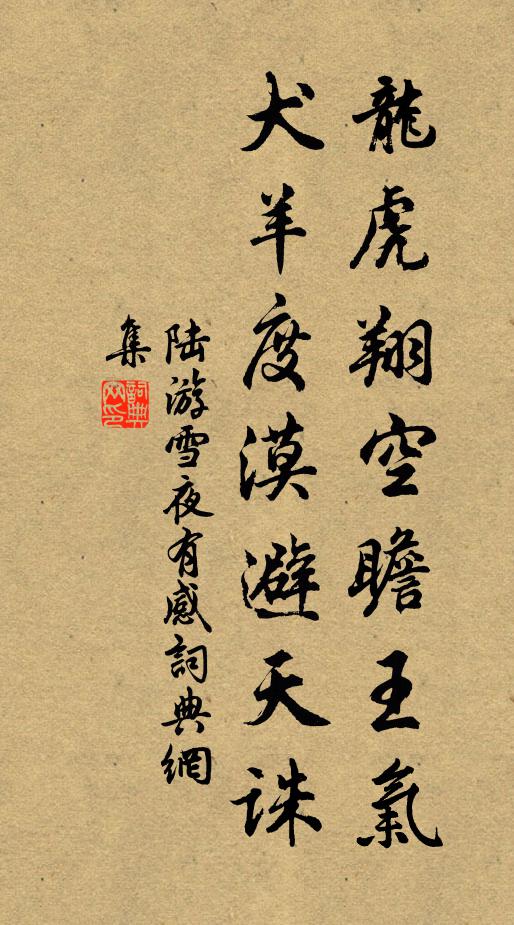 龍虎翔空瞻王氣
犬羊度漠避天誅
陆游雪夜有感詞典網
集
詞典
网印